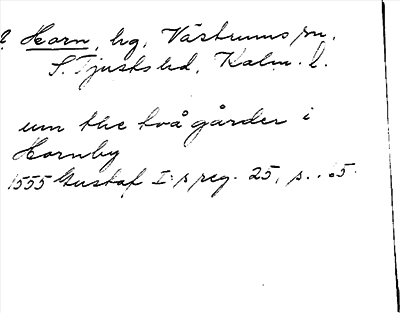 ? Horn, bg, Västrums sn,
S. Tjusts hd, Kalm. l.
um the två gårder i
Hornby
1555 Gustaf I:s reg. 25, s.